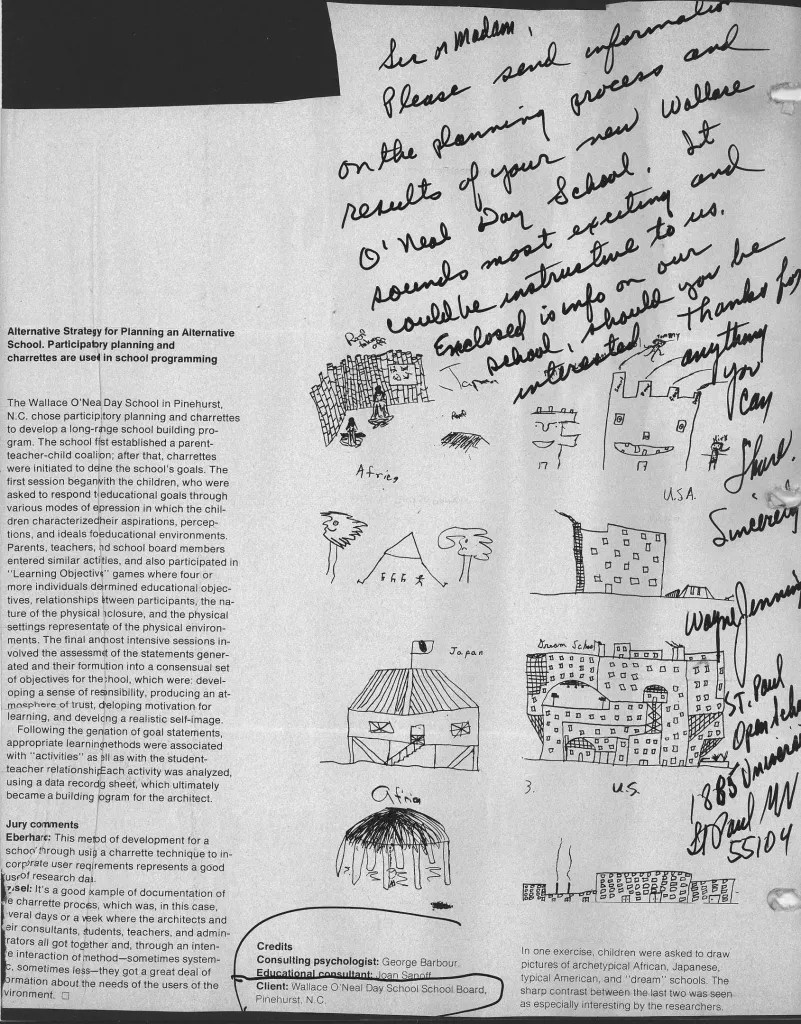 Sir or Madam,
Please send information
on the planning process and
results of your new Wallace
O'Neal Day School. It
sounds most exciting and
could be instructive to us.
Enclosed is info on our
school, should you be
interested. Thanks for
anything
you
can
Share.
Sincerely
Wayne Jennings
St. Paul
Open School
1885 University
St Paul MN
55104
Alternative Strategy for Planning an Alternative
School. Participatory planning and
charrettes are used in school programming
The Wallace O'Nea Day School in Pinehurst,
N.C. chose participtory planning and charrettes
to develop a long-range school building pro-
gram. The school fist established a parent-
teacher-child coalion; after that, charrettes
were initiated to deine the school's goals. The
first session beganwith the children, who were
asked to respond t educational goals through
various modes of epression in which the chil-
dren characterizedheir aspirations, percep-
tions, and ideals foeducational environments.
Parents, teachers, nd school board members
entered similar actities, and also participated in
"Learning Objective" games where four or
more individuals detrmined educational objec-
tives, relationships btween participants, the na-
ture of the physical nclosure, and the physical
settings representate of the physical environ-
ments. The final andmost intensive sessions in-
volved the assessmt of the statements gener-
ated and their formution into a consensual set
of objectives for the hool, which were: devel-
oping a sense of resnsibility, producing an at-
mosphere of trust, dloping motivation for
learning, and develong a realistic self-image.
Following the genation of goal statements,
appropriate learnin methods were associated
with "activities" as ell as with the student-
teacher relationship Each activity was analyzed,
using a data recordg sheet, which ultimately
became a building ogram for the architect.
Jury comments
Eberhard: This metod of development for a
schoo through usig a charrette technique to in-
corporate user reqirements represents a good
us of research daa.
sel: It's a good xample of documentation of
e charrette proces, which was, in this case,
veral days or a week where the architects and
eir consultants, students, teachers, and admin-
rators all got together and, through an inten-
e interaction of method—sometimes system-
c, sometimes less—they got a great deal of
ormation about the needs of the users of the
vironment.
Roof
taking
off
Japan
Roof
Africa
17
17
U.S.A.
Japan
Dream School
3.
U.S.
Africa
Credits
Consulting psychologist: George Barbour.
Educational consultant: Joan Sanoff
Client: Wallace O'Neal Day School School Board,
Pinehurst, N.C.
In one exercise, children were asked to draw
pictures of archetypical African, Japanese,
typical American, and "dream" schools. The
sharp contrast between the last two was seen
as especially interesting by the researchers.